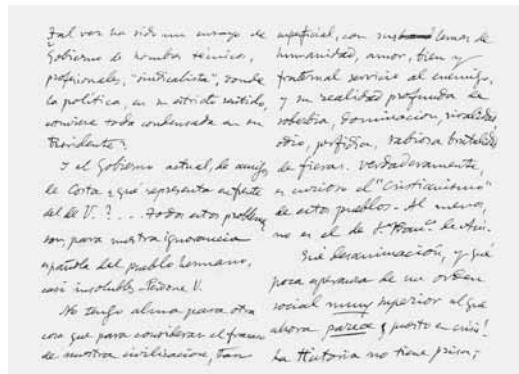 Tal vez ha sido un ensayo de
Gobierno de hombres técnicos,
profesionales, "sindicalista", donde
la política, en su estricto sentido,
estuviere toda condensada en su
Presidente?
Y el Gobierno actual, de amigos
de Costa ¿qué representa enfrente
del de V.?... Todos estos problemas
son para nuestra ignorancia
española del pueblo hermano,
casi insolubles. Perdone V.
No tengo alma para otra
cosa que para considerar el fracaso
de nuestra civilización, tan
superficial, con sus lemas de
humanidad, amor, bien y
fraternal servicio al enemigo,
y su realidad profunda de
soberbia, dominación, rivalidad,
odio, perfidia, rabiosa brutalidad
de fieras. Verdaderamente,
es curioso el "Cristianismo"
de estos pueblos. Al menos,
no es el de Sn Franco. de Asís.
Qué desanimación, y qué
poca esperanza de un orden
social muy superior al que
ahora parece puesto en crisis!
La Historia no tiene prisa;